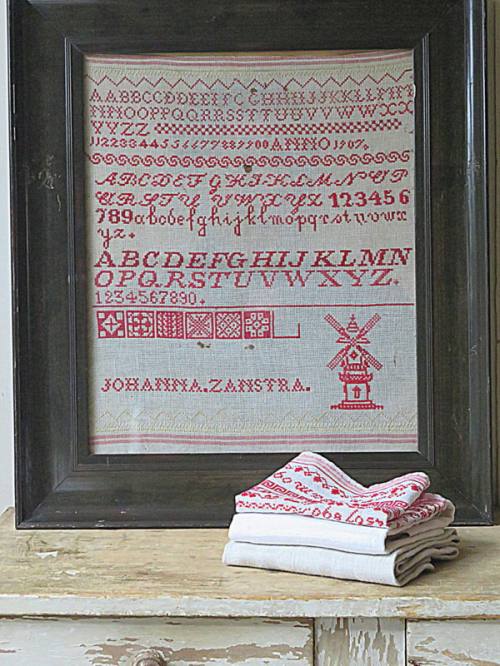 AABBCCDDEEFFGGHHIIJJKKLLMM
NNOOPPQQRRSSTTUUVVWWXX
YYZZ
11223344556677889900 ANNO 1907.
ABCDEFGHIJKLMNOP
QRSTU VWXYZ 123456
789abcdefghijklmopqrstuvwx
yz.
ABCDEFGHIJKLMN
OPQRSTUVWXYZ.
1234567890.
JOHANNA.ZANSTRA.